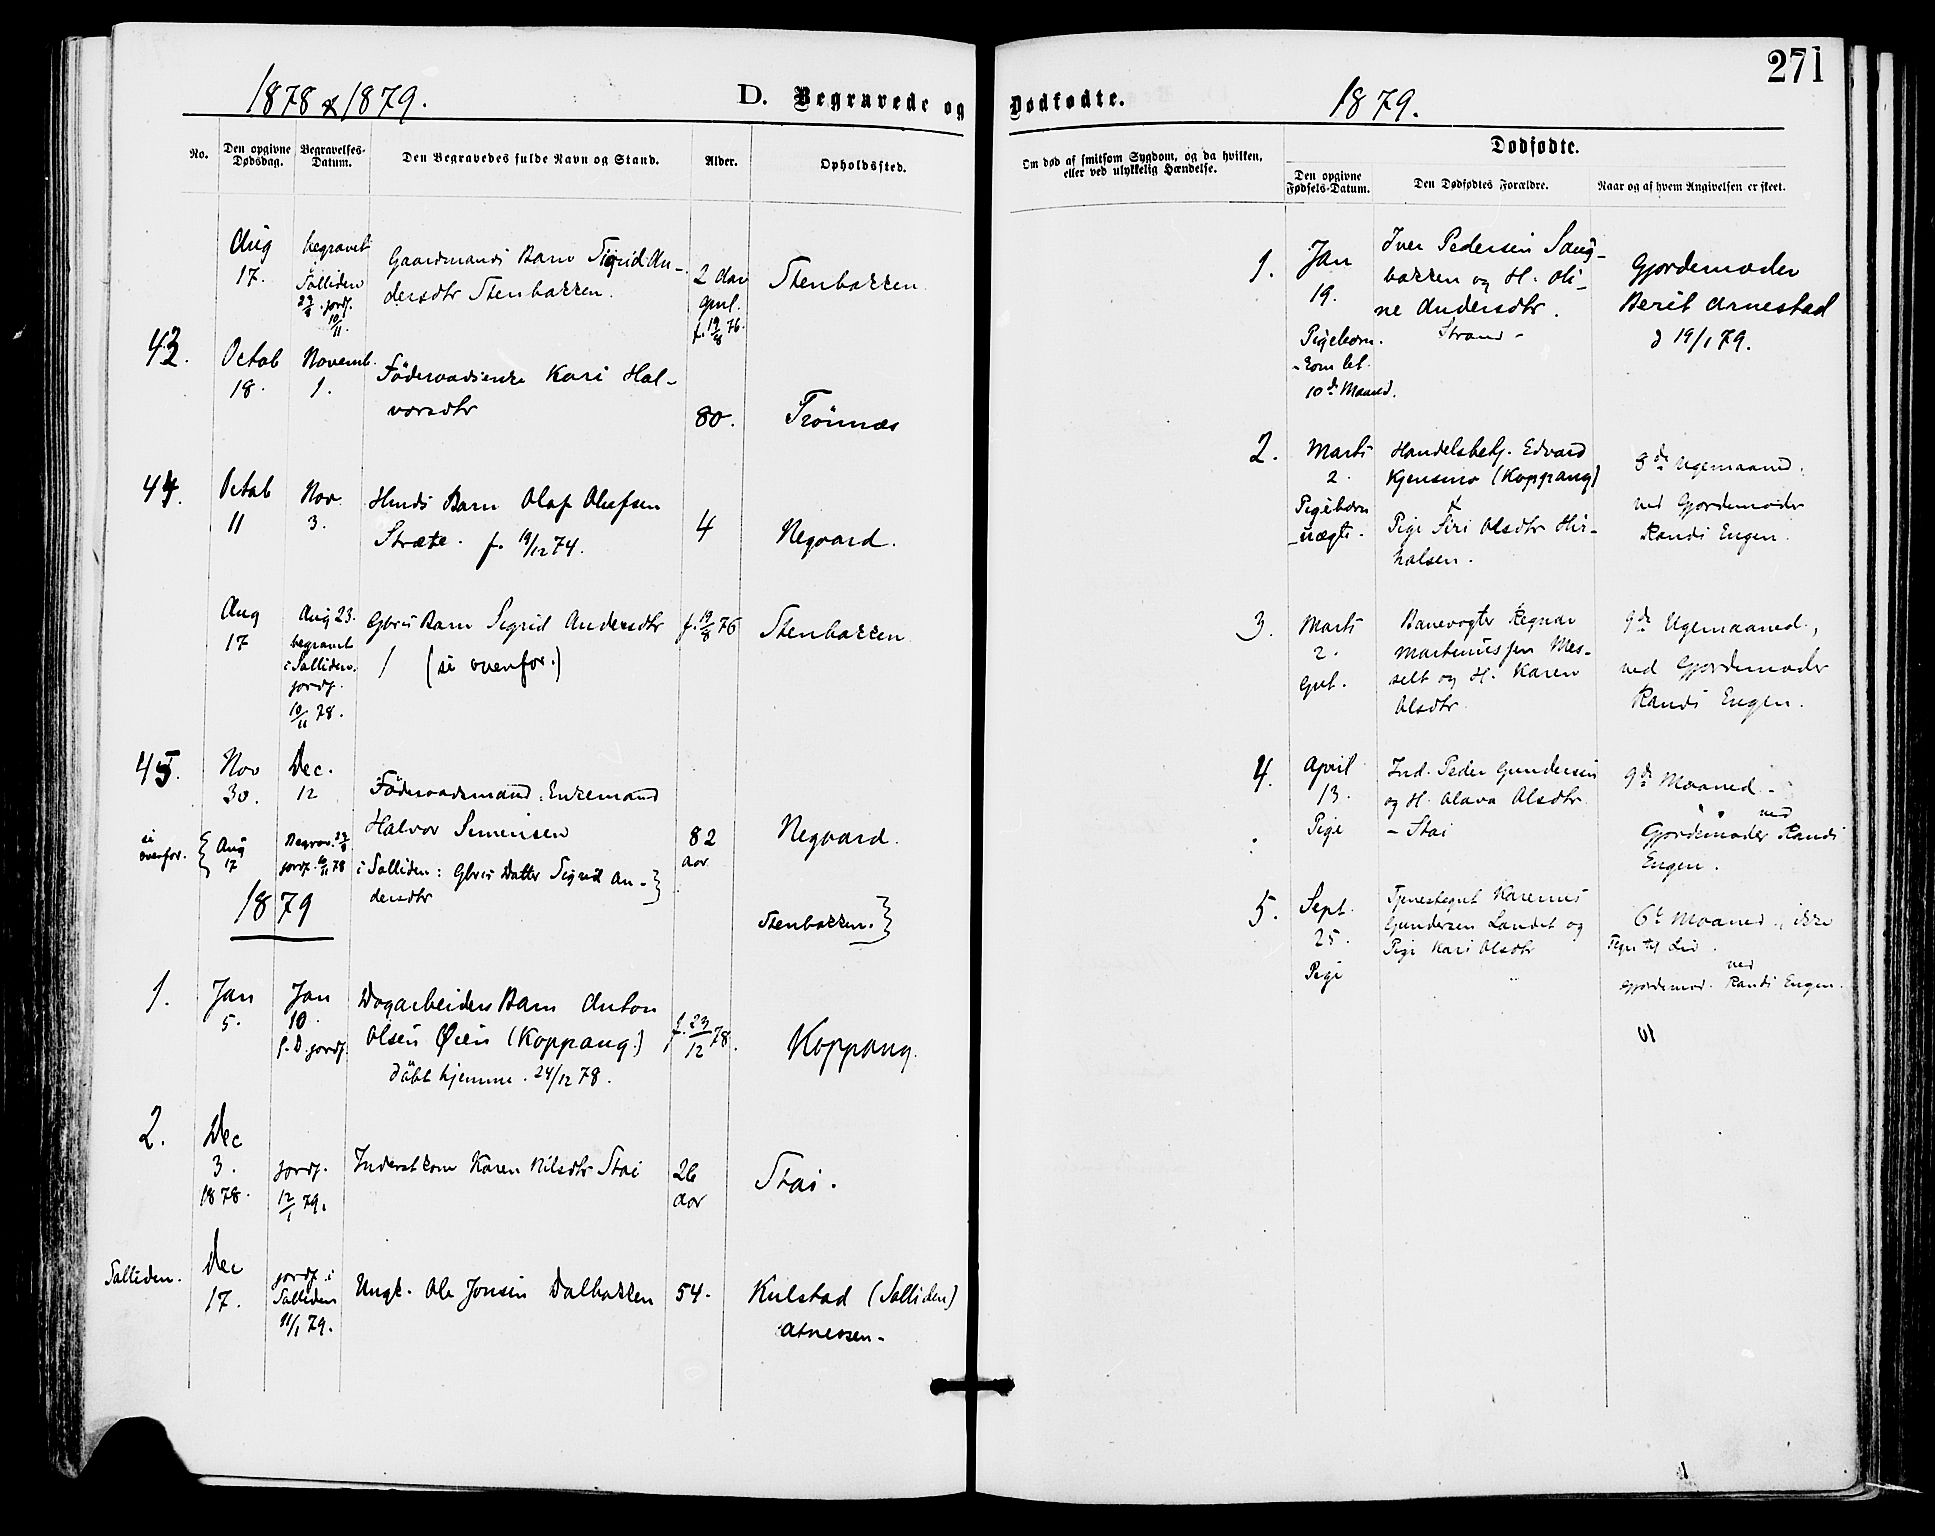 271
1878 & 1879.
D. Begravede og Dødfødte.
1879.
No.
Den opgivne Dødsdag.
Begravelses-Datum.
Den Begravedes fulde Navn og Stand.
Alder.
Opholdssted.
Om død af smitsom Sygdom, og da hvilken,
eller ved ulykkelig Hændelse.
Dødfødte.
Den opgivne Fødsels-Datum.
Den Dødfødtes Forældre.
Naar og af hvem Angivelsen er skeet.
Aug
17.
begravet
Solliden
jordf.
10/11.
Gaardmands Barn Sigrid An-
dersdtr Stenbakken.
2 Aar
gml.
f. 19/8 76.
Stenbakken.
43.
Octob
18.
Novemb.
1.
Föderaadsenke Kari Hal-
vorsdtr
80.
Trönnæs
44.
Octob
11
Nov.
3.
Husds Barn Olaf Olufsen
Stræte. f. 19/12 74.
4
Negaard.
Aug
17
Aug 23.
begravet
i Solliden.
jordf.
10/11 78.
Gbrs Barn Sigrid Andersdtr
(se ovenfor.)
f. 19/8 76
Stenbakken
45.
Nov
30.
Dec.
12
Föderaadsmand, Enkemand
Halvor Simensen
82
Aar
Negaard.
se
ovenfor.
Aug
17
Begrav.
jordf. 10/11 78
i Solliden: Gbrs Datter Sigrid An-
dersdtr
Stenbakken.
1879
1.
Jan
5.
Jan
10.
S. D. jordf.
Dagarbeiders Barn Anton
Olsen Øien (Koppang.)
döbt hjemme. 24/12 78.
f. 23/12 78.
Koppang.
2.
Dec
3.
1878.
jordf.
12/1 79.
Inderstkone Karen Nilsdtr Stai
26
Aar
Stai.
Solliden.
Dec
17.
jordf. i
Solliden
11/1 79.
Ungk. Ole Jonsen Dalbakken
54.
Kulstad (Solliden)
Atneosen.
1.
Jan
19.
Pigebarn.
10de Maaned.
Iver Pedersen Saug-
bakken og H. Oli-
ne Andersdtr.
Strand
Gjordemoder
Berit Arnestad
d 19/1 79.
2.
Marts
2.
Pigebarn
uægte.
Handelsbetj. Edvard
Kjensmo (Koppang)
&
Pige Siri Olsdtr Hir-
halsen.
8de Ugemaaned.
ved Gjordemoder
Randi Engen.
3.
Marts
2.
Gut.
Banevogter Regnar
Martinussen Mes-
selt og H. Karen
Olsdtr
9de Ugemaaned.,
ved Gjordemoder
Randi Engen.
4.
April
13.
Pige
Ind. Peder Gundersen
og H. Olava Olsdtr
- Stai
9de Maaned.
ved
Gjordemoder Randi
Engen.
5.
Sept.
25.
Pige
Tjenestegut Karenus
Gundersen Landet og
Pige Kari Olsdtr
6te Maaned., ikke
Tegn til Liv.
ved
Gjordemod. Randi Engen.